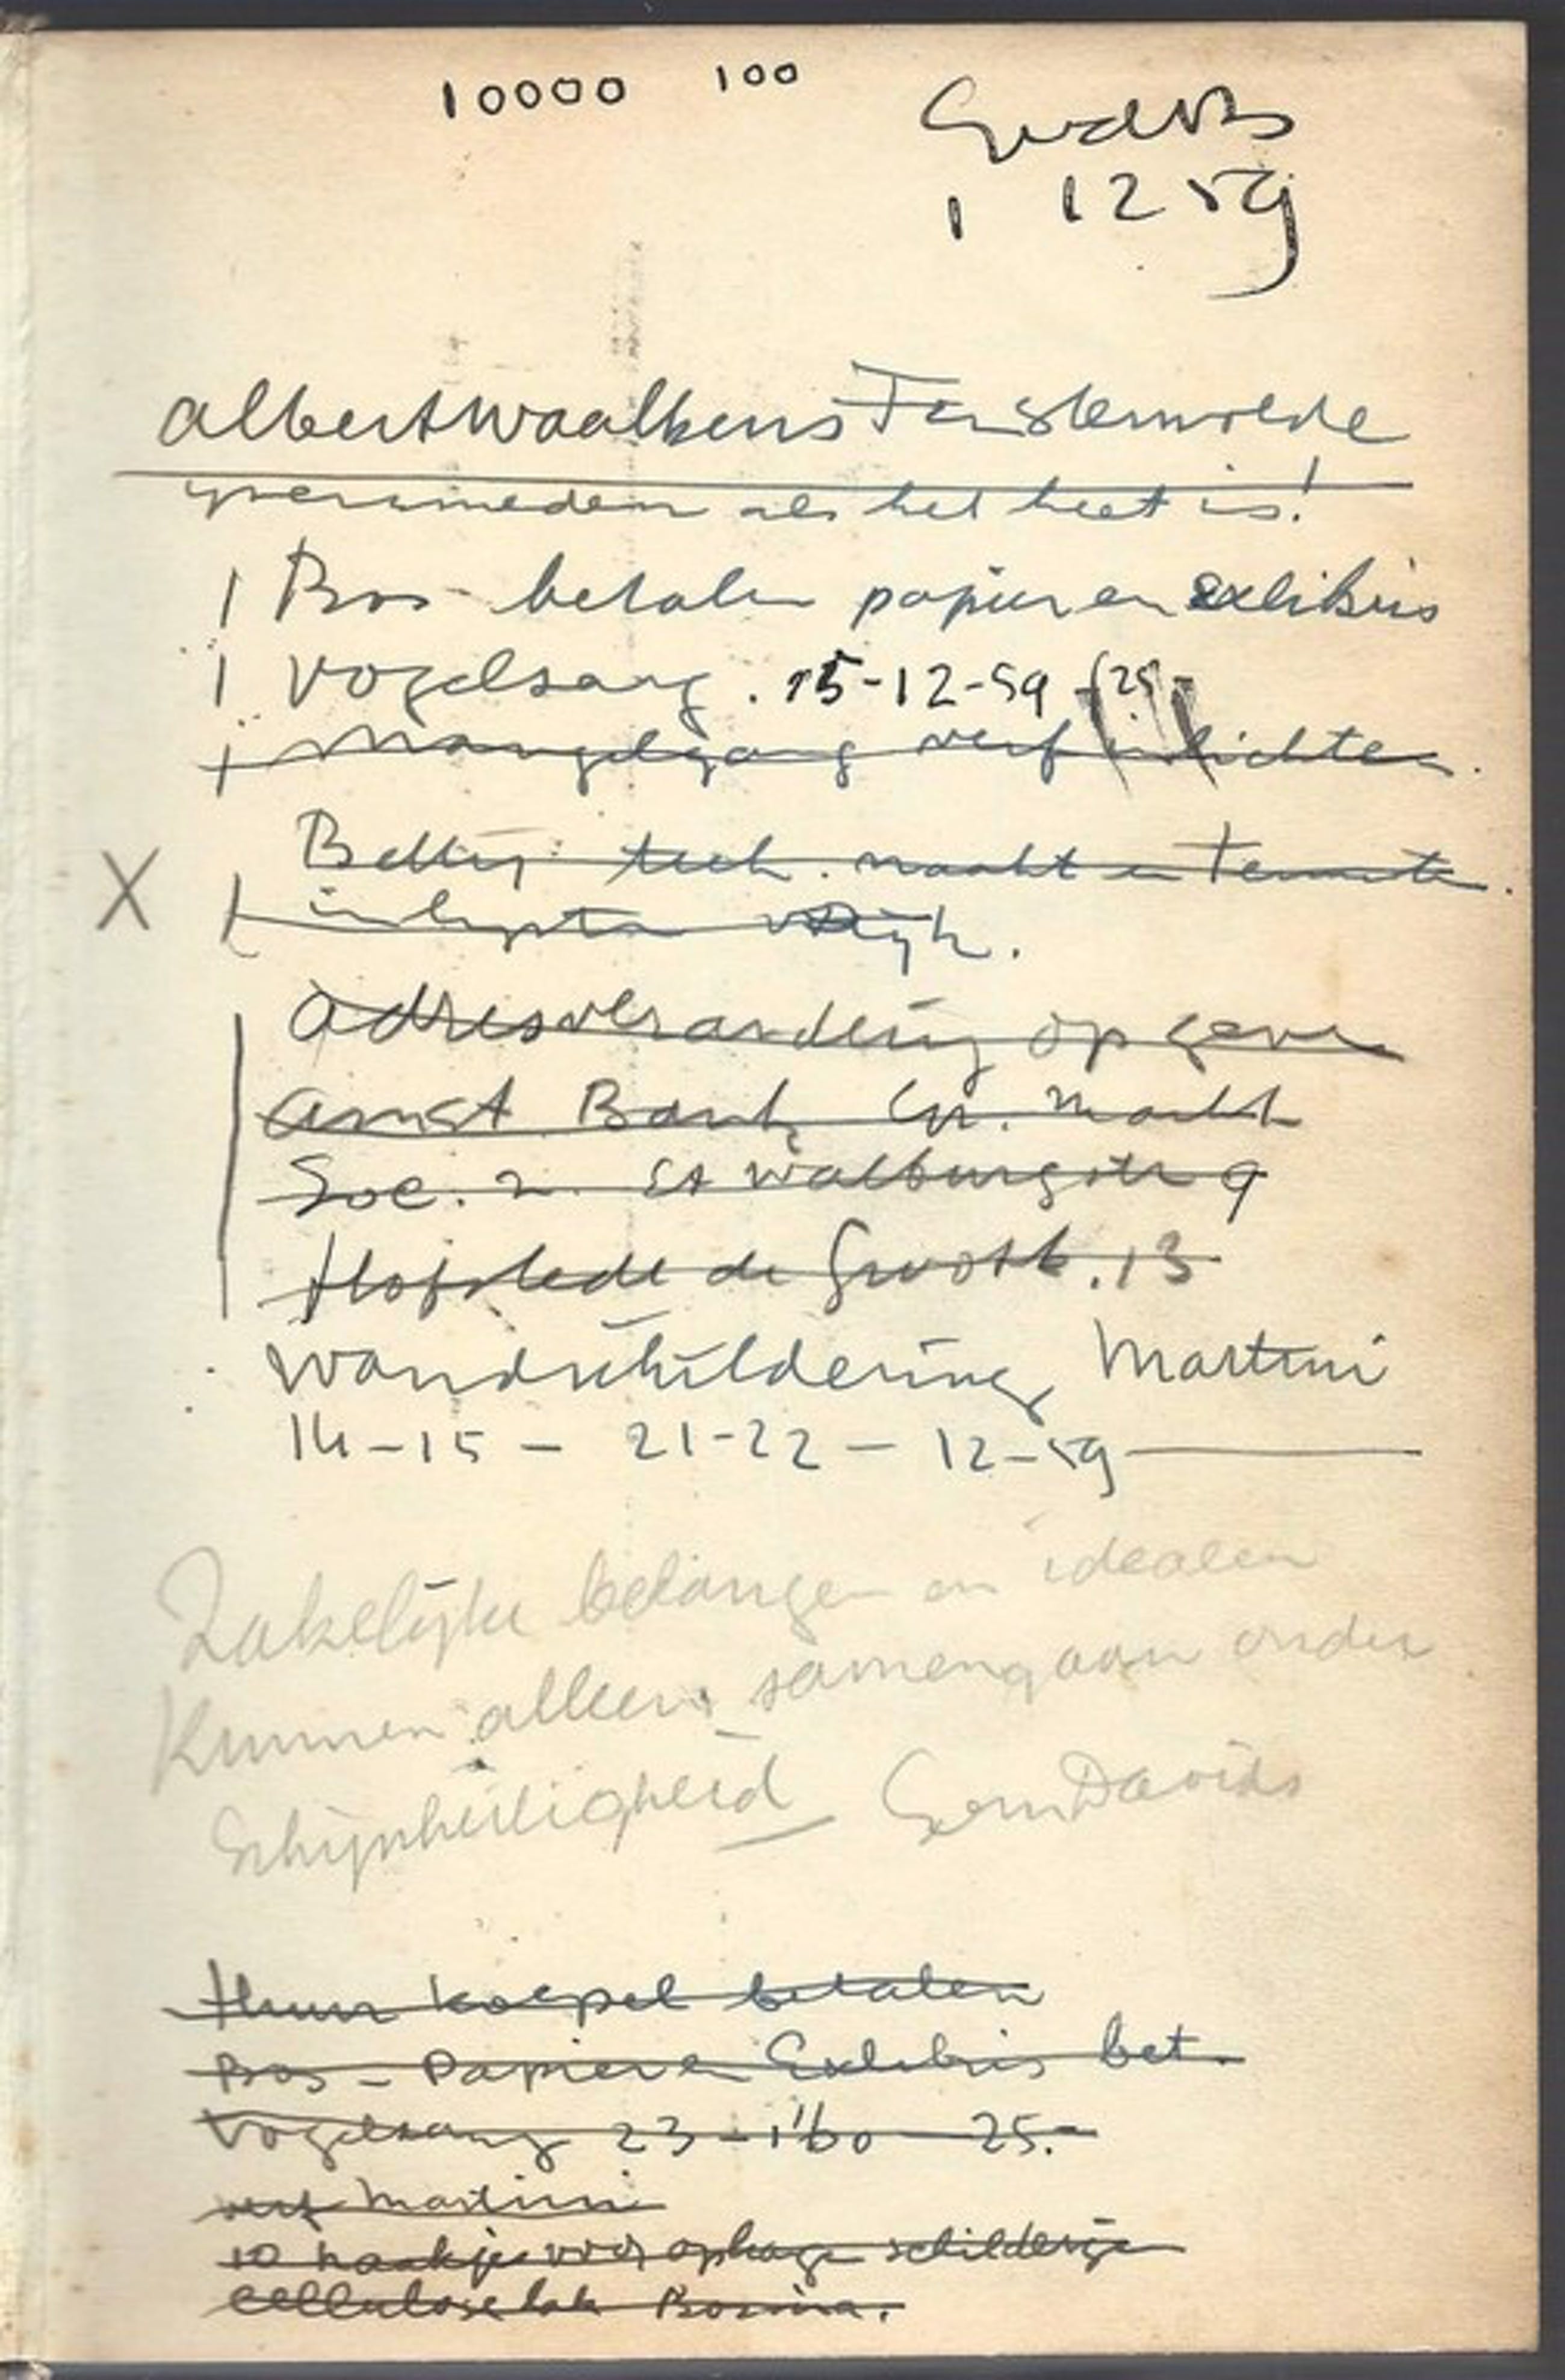 10000 100
1 12 59
albert waalkens Finsterwolde
ijzersmeden als het heet is!
1 Bos - betalen papier en exlibris
1 Vogelsang . 15-12-59 f25,-
verf
X
Betty tech. naakt en
adresverandering opgeven
Amst Bank Gr. Markt
Soc. Z. St Walburgstr 9
Hofstede de Grootk. 13
wandschildering Martini
14-15 - 21-22 - 12-59
Zakelijke belangen en idealen
Kunnen alleen samengaan onder
Schijnheiligheid - Gem Davids
Huur koepel betalen
Bos - Papier en Exlibris bet.
Vogelsang 23-1 60 25.-
verf Martini
10 haakjes voor ophangen schilderijen
Celluloselak